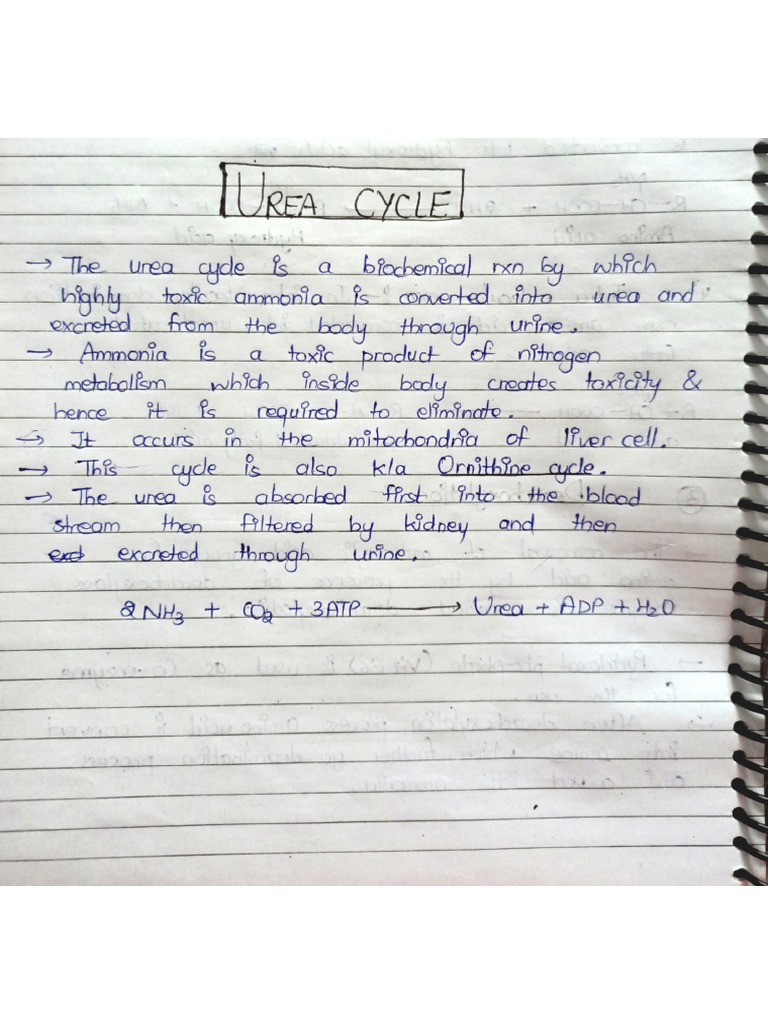 UREA CYCLE
→ The urea cycle is a biochemical rxn by which
highly toxic ammonia is converted into urea and
excreted from the body through urine.
→ Ammonia is a toxic product of nitrogen
metabolism which inside body creates toxicity &
hence it is required to eliminate.
→ It occurs in the mitochondria of liver cell.
→ This cycle is also k/a Ornithine cycle.
→ The urea is absorbed first into the blood
stream then filtered by kidney and then
excreted through urine.
2NH₃ + CO₂ + 3ATP → Urea + ADP + H₂O